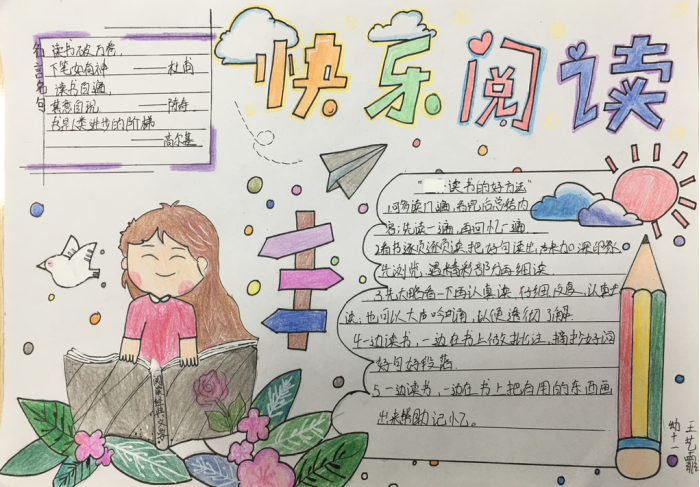 快乐阅读
名言名句
读书破万卷,
下笔如有神 ——杜甫
读书百遍,
其意自现 ——陈寿
书是人类进步的阶梯
——高尔基
读书的好方法"
1.可多读几遍,看完后总结内
容:先读一遍,再回忆一遍
2.看书逐页逐页读,把好句读出来加深印象
先浏览,遇精彩部分再细读.
3.先大略看一下再认真读,仔细
读;也可以大声吟诵,以便透彻了解
4一边读书,一边在书上做批注,摘抄好词
好句好段落.
5一边读书,一边在书上把有用的东西画
出来帮助记忆。
幼十一
王艺霏